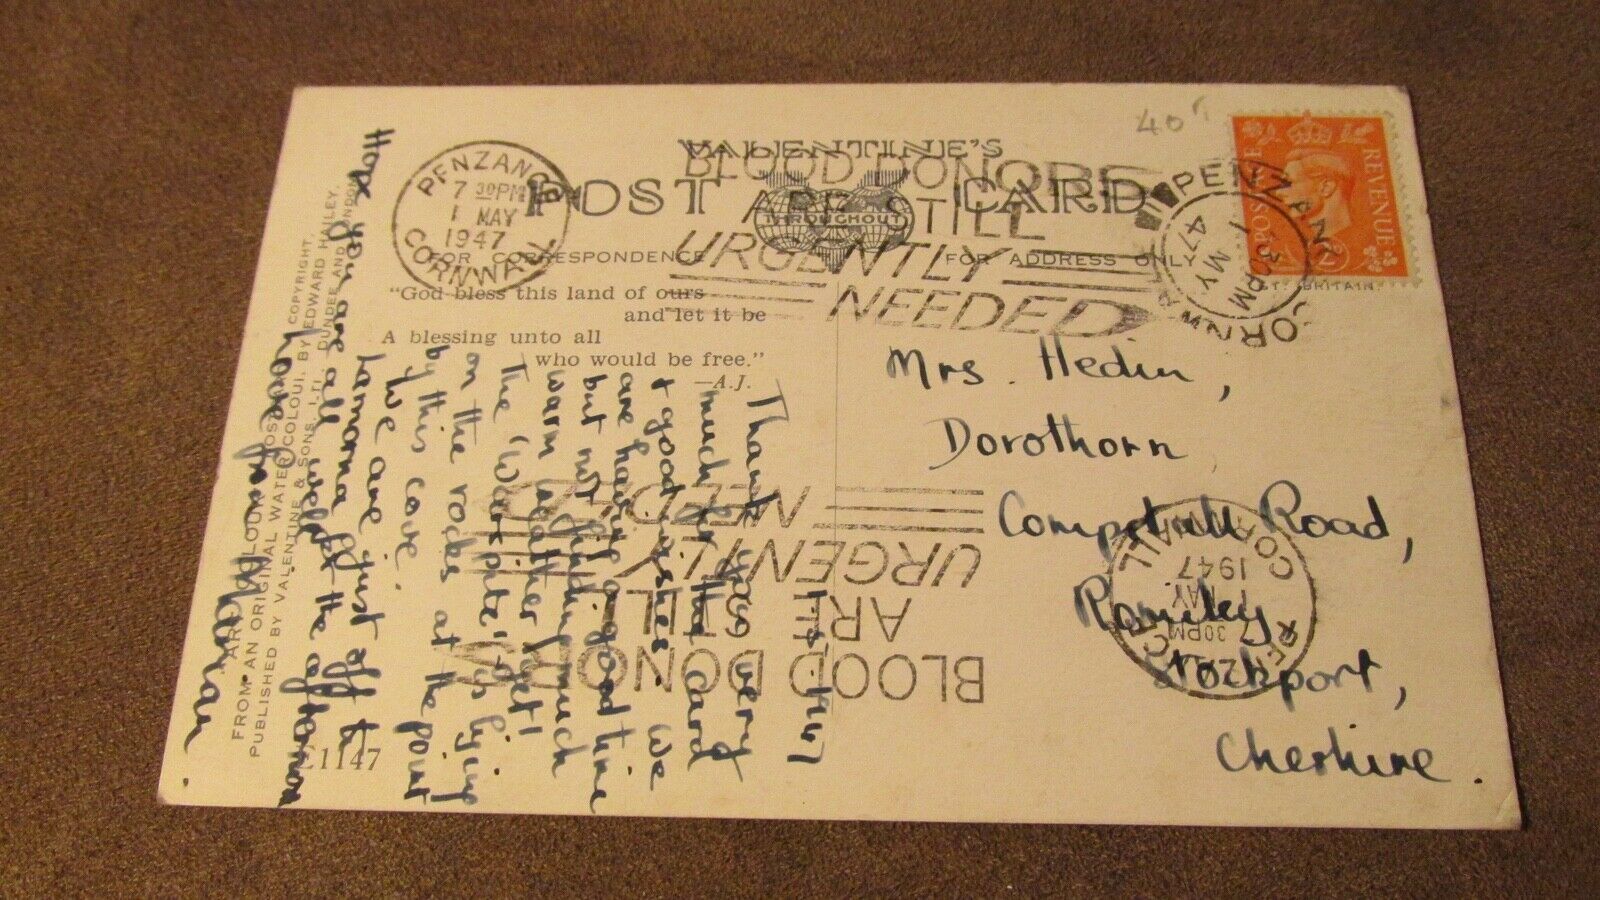 VALENTINE'S
POST CARD
THROUGHOUT
FOR CORRESPONDENCE
FOR ADDRESS ONLY
"God bless this land of ours
and let it be
A blessing unto all
who would be free."
—A.J.
PENZANCE
7 30PM
1 MAY
1947
CORNWALL
BLOOD DONORS
ARE STILL
URGENTLY
NEEDED
PENZANCE
7 30PM
1 MY
47
CORNWALL
POSTAGE REVENUE
40
Mrs. Hedin,
Dorothorn
Compstall Road,
Romiley
Stockport,
Cheshire.
PENZANCE
7 30PM
1 MAY
1947
CORNWALL
BLOOD DONORS
ARE STILL
URGENTLY
NEEDED
May 1st. 1947
Thank you very
much for the card
& good wishes. We
are having a good time
but not finding much
warm weather. Love
The 'Warspite' is lying
on the rocks at the point
by this cove.
We are just off to
Lamorna for the afternoon
Hope you are all well.
Love from
ART COLOUR
FROM AN ORIGINAL WATER COLOUR BY EDWARD HAILEY.
PUBLISHED BY VALENTINE & SONS, LTD., DUNDEE AND LONDON
COPYRIGHT
1147